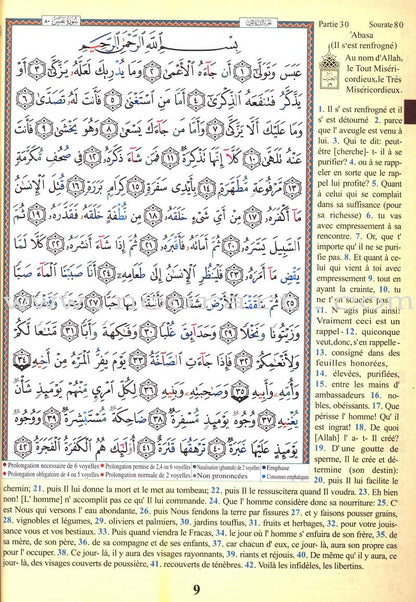 Partie 30 Sourate 80
'Abasa
(Il s'est renfrogné)
Au nom d'Allah,
le Tout Miséri-
cordieux, le Très
Miséricordieux.
بِسْمِ اللَّهِ الرَّحْمَٰنِ الرَّحِيمِ
عَبَسَ وَتَوَلَّىٰٓ ١ أَن جَآءَهُ ٱلْأَعْمَىٰ ٢ وَمَا يُدْرِيكَ لَعَلَّهُۥ يَزَّكَّىٰٓ ٣ أَوْ
يَذَّكَّرُ فَتَنفَعَهُ ٱلذِّكْرَىٰٓ ٤ أَمَّا مَنِ ٱسْتَغْنَىٰ ٥ فَأَنتَ لَهُۥ تَصَدَّىٰ ٦
وَمَا عَلَيْكَ أَلَّا يَزَّكَّىٰ ٧ وَأَمَّا مَن جَآءَكَ يَسْعَىٰ ٨ وَهُوَ يَخْشَىٰ ٩ فَأَنتَ
عَنْهُ تَلَهَّىٰ ١٠ كَلَّآ إِنَّهَا تَذْكِرَةٌ ١١ فَمَن شَآءَ ذَكَرَهُۥ ١٢ فِى صُحُفٍ مُّكَرَّمَةٍ
١٣ مَّرْفُوعَةٍ مُّطَهَّرَةٍۭ ١٤ بِأَيْدِى سَفَرَةٍ ١٥ كِرَامٍۭ بَرَرَةٍ ١٦ قُتِلَ ٱلْإِنسَٰنُ
مَآ أَكْفَرَهُۥ ١٧ مِنْ أَىِّ شَىْءٍ خَلَقَهُۥ ١٨ مِن نُّطْفَةٍ خَلَقَهُۥ فَقَدَّرَهُۥ ١٩ ثُمَّ
ٱلسَّبِيلَ يَسَّرَهُۥ ٢٠ ثُمَّ أَمَاتَهُۥ فَأَقْبَرَهُۥ ٢١ ثُمَّ إِذَا شَآءَ أَنشَرَهُۥ ٢٢ كَلَّا لَمَّا
يَقْضِ مَآ أَمَرَهُۥ ٢٣ فَلْيَنظُرِ ٱلْإِنسَٰنُ إِلَىٰ طَعَامِهِۦٓ ٢٤ أَنَّا صَبَبْنَا ٱلْمَآءَ صَبًّا
٢٥ ثُمَّ شَقَقْنَا ٱلْأَرْضَ شَقًّا ٢٦ فَأَنۢبَتْنَا فِيهَا حَبًّا ٢٧ وَعِنَبًا وَقَضْبًا ٢٨
وَزَيْتُونًا وَنَخْلًا ٢٩ وَحَدَآئِقَ غُلْبًا ٣٠ وَفَٰكِهَةً وَأَبًّا ٣١ مَّتَٰعًا لَّكُمْ
وَلِأَنْعَٰمِكُمْ ٣٢ فَإِذَا جَآءَتِ ٱلصَّآخَّةُ ٣٣ يَوْمَ يَفِرُّ ٱلْمَرْءُ مِنْ أَخِيهِ ٣٤
وَأُمِّهِۦ وَأَبِيهِ ٣٥ وَصَٰحِبَتِهِۦ وَبَنِيهِ ٣٦ لِكُلِّ ٱمْرِئٍ مِّنْهُمْ يَوْمَئِذٍ شَأْنٌ
يُغْنِيهِ ٣٧ وُجُوهٌ يَوْمَئِذٍ مُّسْفِرَةٌ ٣٨ ضَاحِكَةٌ مُّسْتَبْشِرَةٌ ٣٩ وَوُجُوهٌ
يَوْمَئِذٍ عَلَيْهَا غَبَرَةٌ ٤٠ تَرْهَقُهَا قَتَرَةٌ ٤١ أُو۟لَٰٓئِكَ هُمُ ٱلْكَفَرَةُ ٱلْفَجَرَةُ ٤٢
1. Il s' est renfrogné et il
s' est détourné 2. parce
que l' aveugle est venu à
lui. 3. Qui te dit: peut-
être [cherche]- t- il à se
purifier? 4. ou à se rap-
peler en sorte que le rap-
pel lui profite? 5. Quant
à celui qui se complaît
dans sa suffisance (pour
sa richesse) 6. tu vas
avec empressement à sa
rencontre. 7. Or, que t'
importe qu' il ne se puri-
fie pas. 8. Et quant à ce-
lui qui vient à toi avec
empressement 9. tout en
ayant la crainte, 10. tu
ne t'
11. N' agis plus ainsi!
Vraiment ceci est un
rappel- 12. quiconque
veut, donc, s'en rappelle-
13. consigné dans des
feuilles honorées,
14. élevées, purifiées,
15. entre les mains d'
ambassadeurs 16. no-
bles, obéissants. 17. Que
périsse l'homme! Qu' il
est ingrat! 18. De quoi
[Allah] l' a- t- Il créé?
19. D' une goutte de
sperme, Il le crée et dé-
termine (son destin):
20. puis Il lui facilite le
Prolongation nécessaire de 6 voyelles Prolongation permise de 2,4 ou 6 voyelles Nasalisation (ghunnah) de 2 voyelles Emphase
Prolongation obligatoire de 4 ou 5 voyelles Prolongation normale de 2 voyelles Non prononcées Consonnes emphatiques
chemin; 21. puis Il lui donne la mort et le met au tombeau; 22. puis Il le ressuscitera quand Il voudra. 23. Eh bien
non! [L' homme] n' accomplit pas ce qu' Il lui commande. 24. Que l' homme considère donc sa nourriture: 25. C'
est Nous qui versons l' eau abondante, 26. puis Nous fendons la terre par fissures 27. et y faisons pousser grains,
28. vignobles et légumes, 29. oliviers et palmiers, 30. jardins touffus, 31. fruits et herbages, 32. pour votre jouis-
sance vous et vos bestiaux. 33. Puis quand viendra le Fracas, 34. le jour où l' homme s' enfuira de son frère, 35. de
sa mère, de son père, 36. de sa compagne et de ses enfants, 37. car chacun d' eux, ce jour- là, aura son propre cas
pour l' occuper. 38. Ce jour- là, il y aura des visages rayonnants, 39. riants et réjouis. 40. De même qu' il y aura, ce
jour-là, des visages couverts de poussière, 41. recouverts de ténèbres. 42. Voilà les infidèles, les libertins.
9